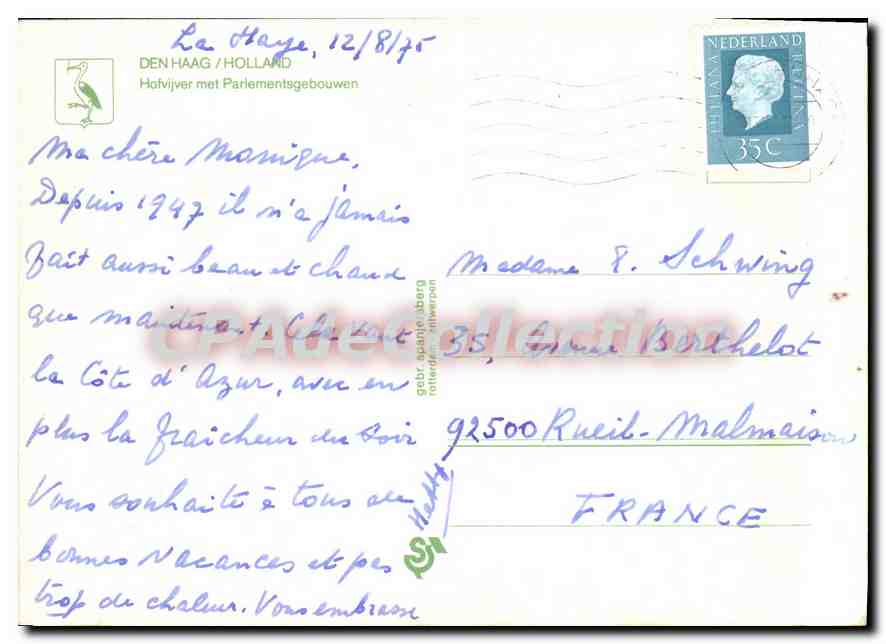 La Haye, 12/8/75
DEN HAAG / HOLLAND
Hofvijver met Parlementsgebouwen
Ma chère Monique,
Depuis 1947 il n'a jamais
fait aussi beau et chaud
que maintenant. Cela vaut
la Côte d'Azur, avec en
plus la fraîcheur du soir
Vous souhaite à tous de
bonnes vacances et pas
trop de chaleur. Vous embrasse
Hetty
gebr. spanjersberg
rotterdam antwerpen
NEDERLAND
JULIANA REGINA
35 C
Madame E. Schwing
35, Avenue Berthelot
92500 Rueil-Malmaison
FRANCE
CPAdeCollection